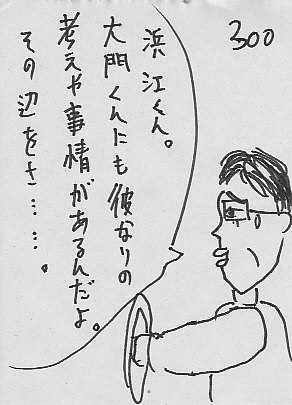 300
浜江くん。
大門くんにも彼なりの
考えや事情があるんだよ。
その辺をさ……。